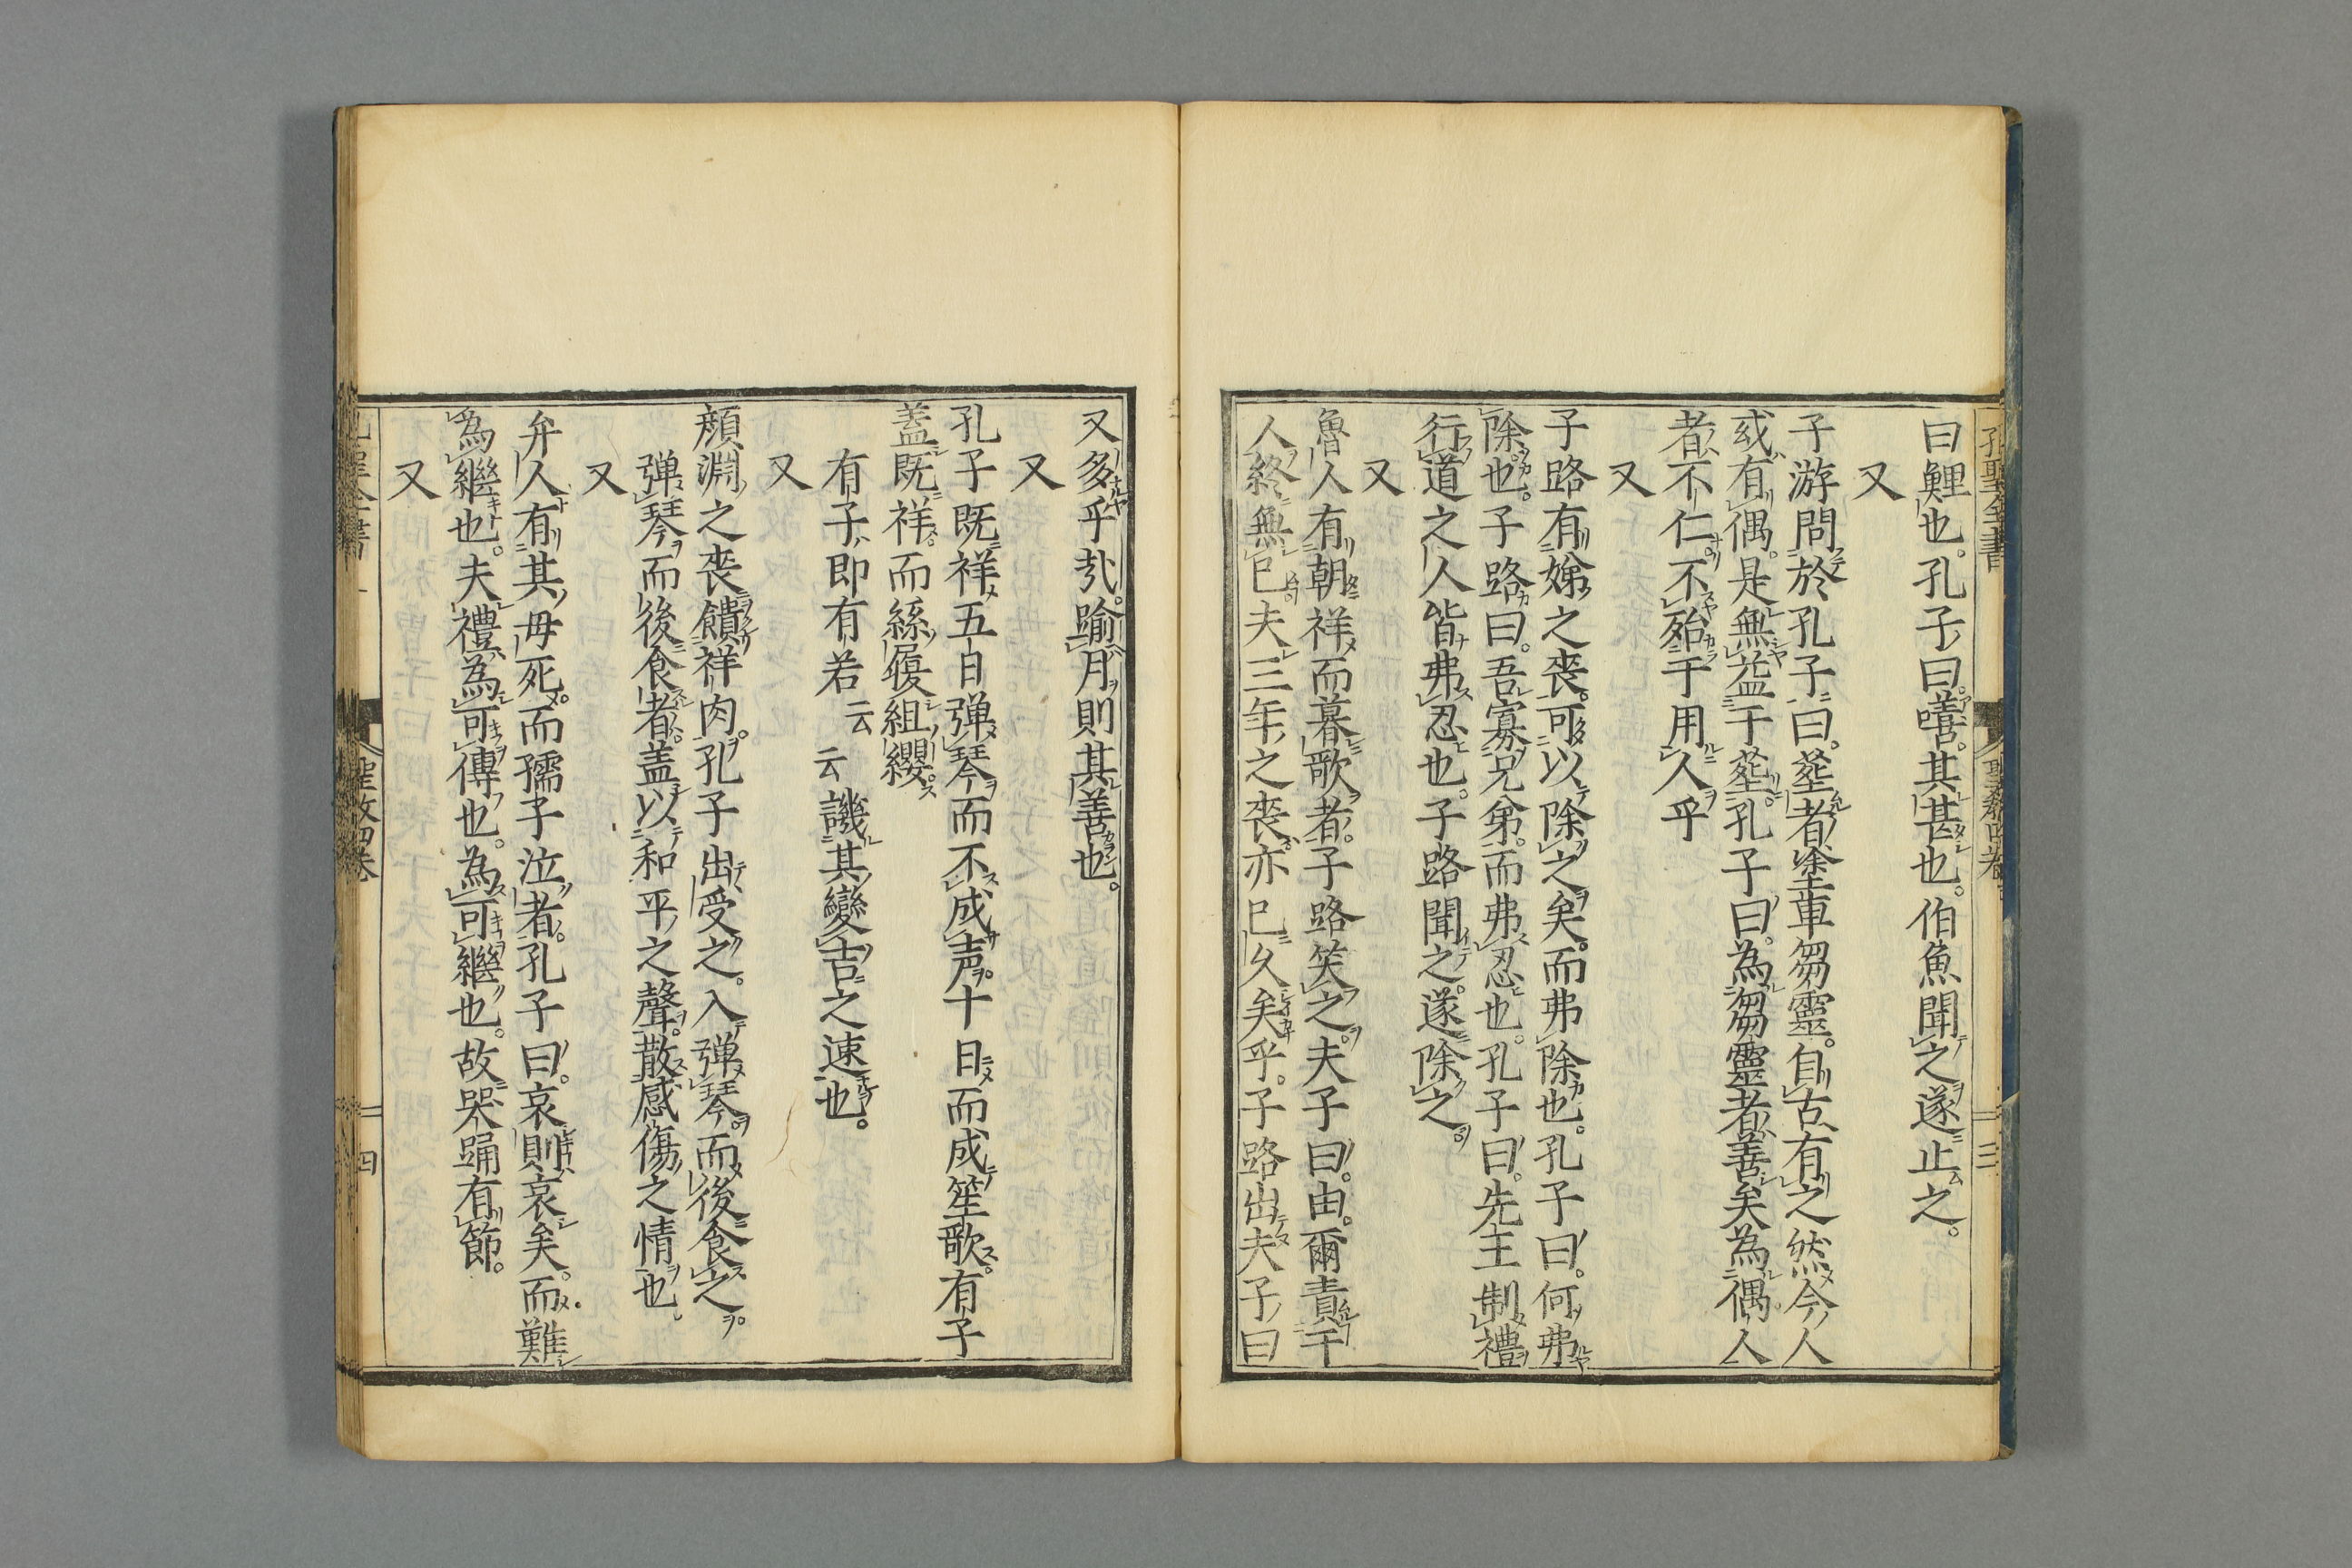 曰鯉也。孔子曰。嘻。其甚也。伯魚聞之遂止之。
又
子游問於孔子曰。塟者塗車芻靈。自古有之然今人
或有偶。是無益于塟。孔子曰。為芻靈者善矣為偶人
者不仁。不殆于用人乎
又
子路有姊之喪。可以除之矣。而弗除也。孔子曰。何弗
除也。子路曰。吾寡兄弟。而弗忍也。孔子曰。先王制禮
行道之人皆弗忍也。子路聞之。遂除之。
又
魯人有朝祥而暮歌者。子路笑之。夫子曰。由。爾責于
人終無已夫三年之喪。亦已久矣乎。子路出夫子曰
又多乎㢤。踰月則其善也。
又
孔子既祥五日弾琴而不成声。十日而成笙歌。有子
蓋既祥。而絲屨組纓。
有子即有若云云譏其變吉之速也。
又
顔淵之喪饋祥肉。孔子出受之。入弾琴。而後食之。
弾琴而後食者。蓋以和平之聲。散感傷之情也。
又
弁人有其母死。而孺子泣者。孔子曰。哀則哀矣。而難
為繼也。夫禮為可傳也。為可繼也。故哭踊有節。
又
四